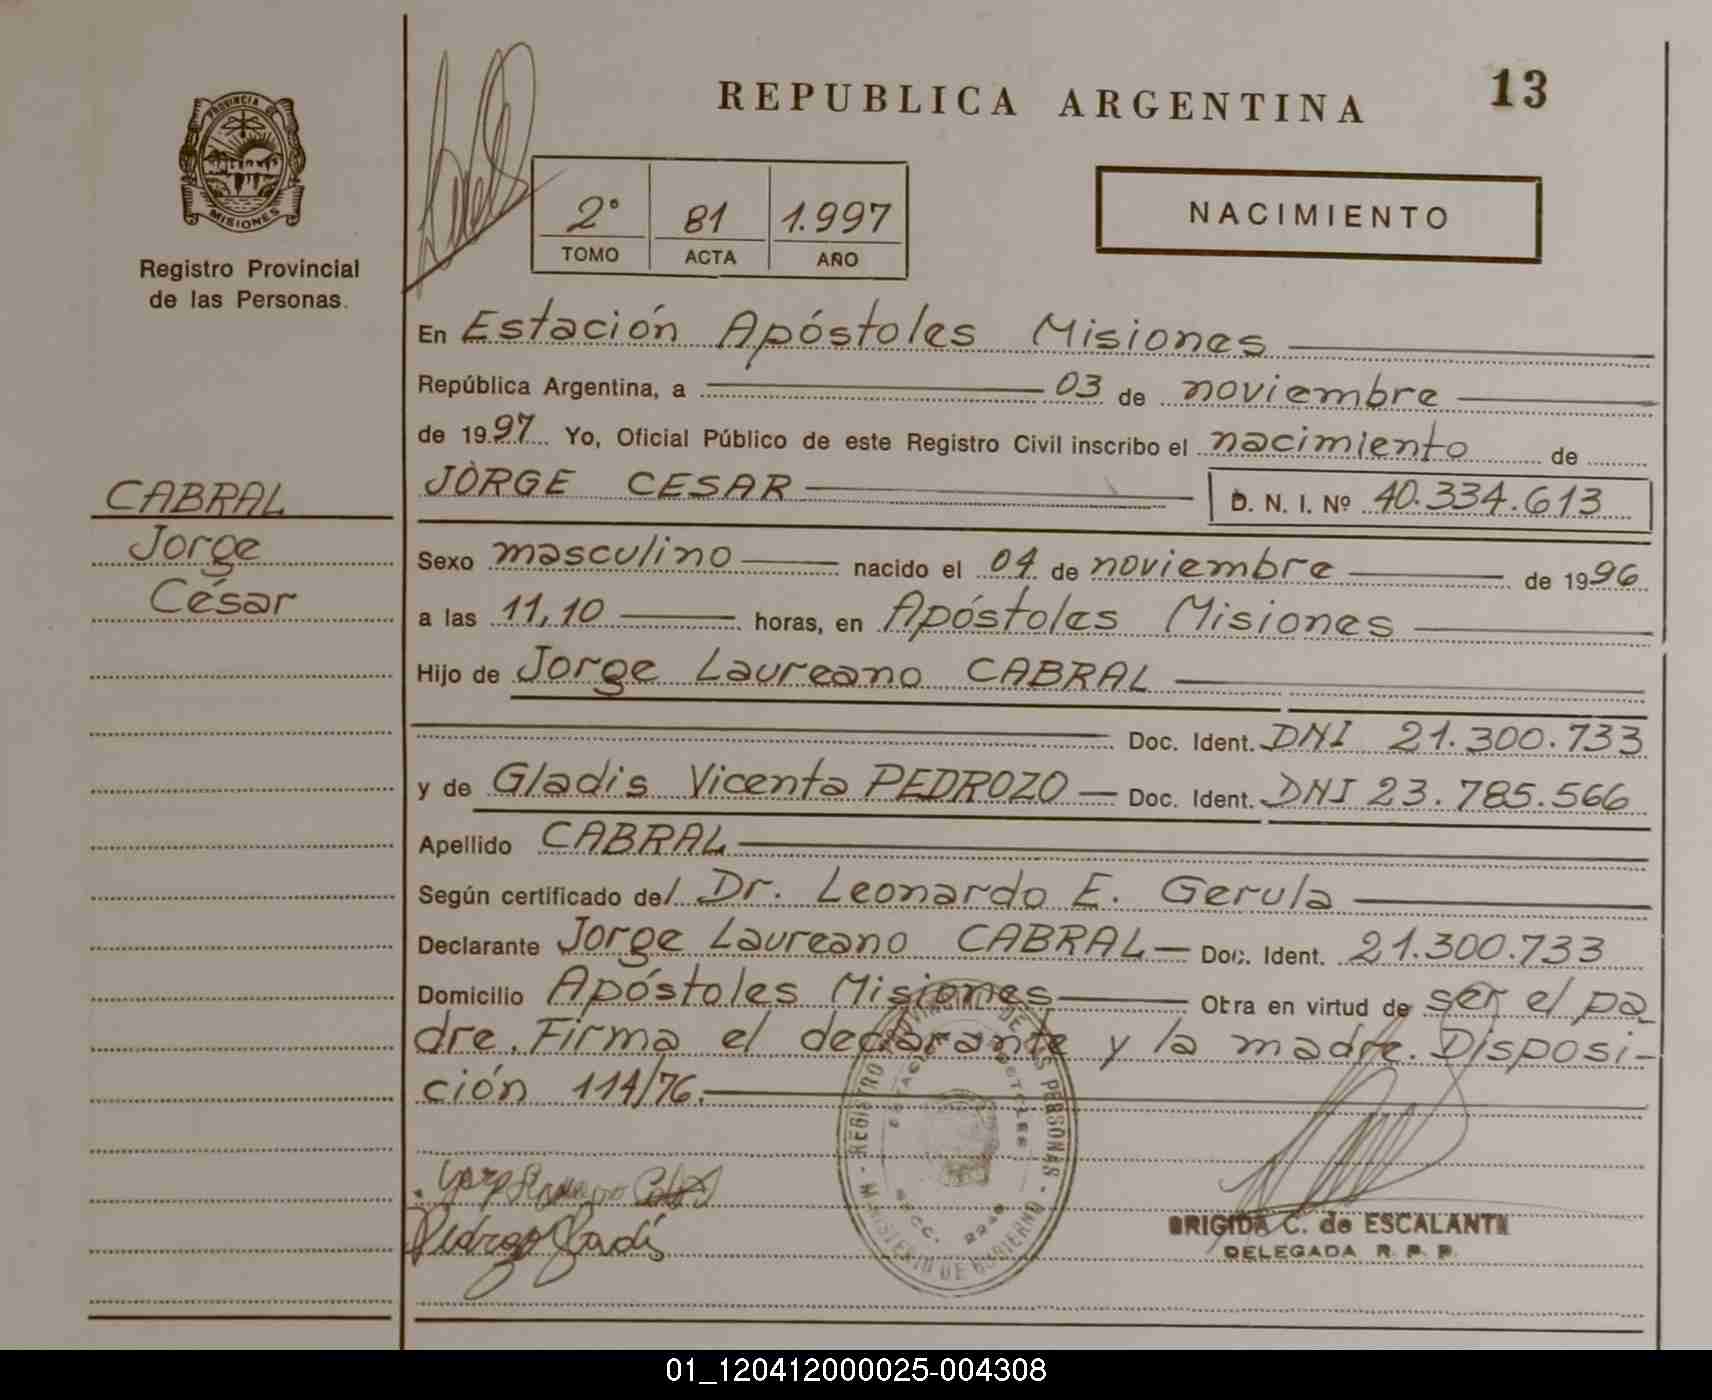 REPUBLICA ARGENTINA
13
PROVINCIA DE
MISIONES
Registro Provincial
de las Personas.
2° 81 1.997
TOMO ACTA AÑO
NACIMIENTO
En Estación Apóstoles Misiones
República Argentina, a 03 de noviembre
de 1997 Yo, Oficial Público de este Registro Civil inscribo el nacimiento de
JORGE CESAR D. N. I. Nº 40.334.613
CABRAL
Jorge
César
Sexo masculino nacido el 04 de noviembre de 1996.
a las 11,10 horas, en Apóstoles Misiones
Hijo de Jorge Laureano CABRAL
Doc. Ident. DNI 21.300.733
y de Gladis Vicenta PEDROZO Doc. Ident. DNI 23.785.566
Apellido CABRAL
Según certificado del Dr. Leonardo E. Gerula
Declarante Jorge Laureano CABRAL Doc. Ident. 21.300.733
Domicilio Apóstoles Misiones Obra en virtud de ser el pa-
dre. Firma el declarante y la madre. Disposi-
ción 114/76.
REGISTRO PROVINCIAL DE LAS PERSONAS - MINISTERIO DE GOBIERNO -
BRIGIDA C. de ESCALANTE
DELEGADA R. P. P.
01_120412000025-004308